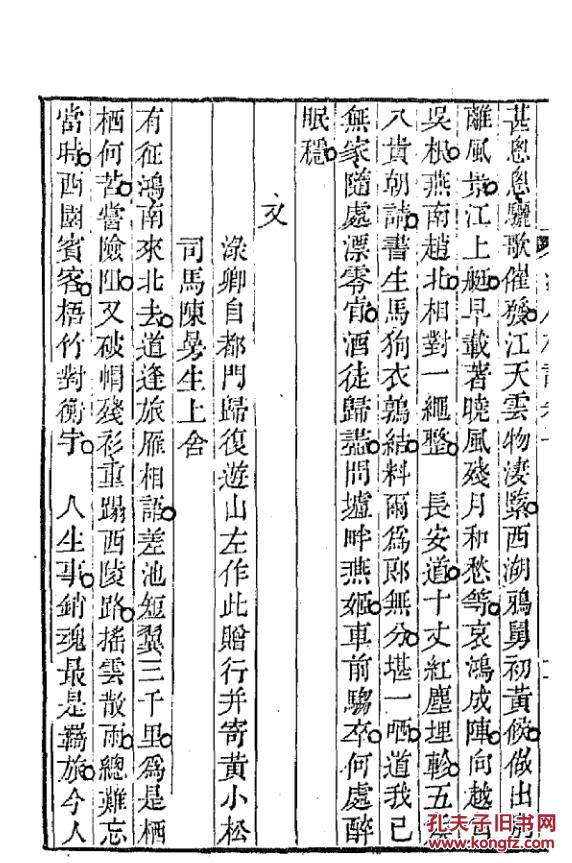 甚悤悤驪歌催發江天雲物淒黯西湖鴉舅初黃候做出
離風景江上艇早載著曉風殘月和愁等哀鴻成陣向越
吳根燕南趙北相對一繩整　長安道十丈紅塵埋軫五
八貴朝請書生馬狗衣鶉結料爾爲郎無分堪一哂道我已
無家隨處漂零肯酒徒歸盡問壚畔燕姬車前騶卒何處醉
眠穩
又
淥卿自都門歸復遊山左作此贈行并寄黃小松
司馬陳曼生上舍
有征鴻南來北去道逢旅雁相語差池短翼三千里爲是栖
栖何苦嘗險阻又破帽殘衫重蹋西陵路搖雲散雨總難忘
當時西園賓客梧竹對衡宇　人生事銷魂最是羇旅今人
孔夫子旧书网
www.kongfz.com